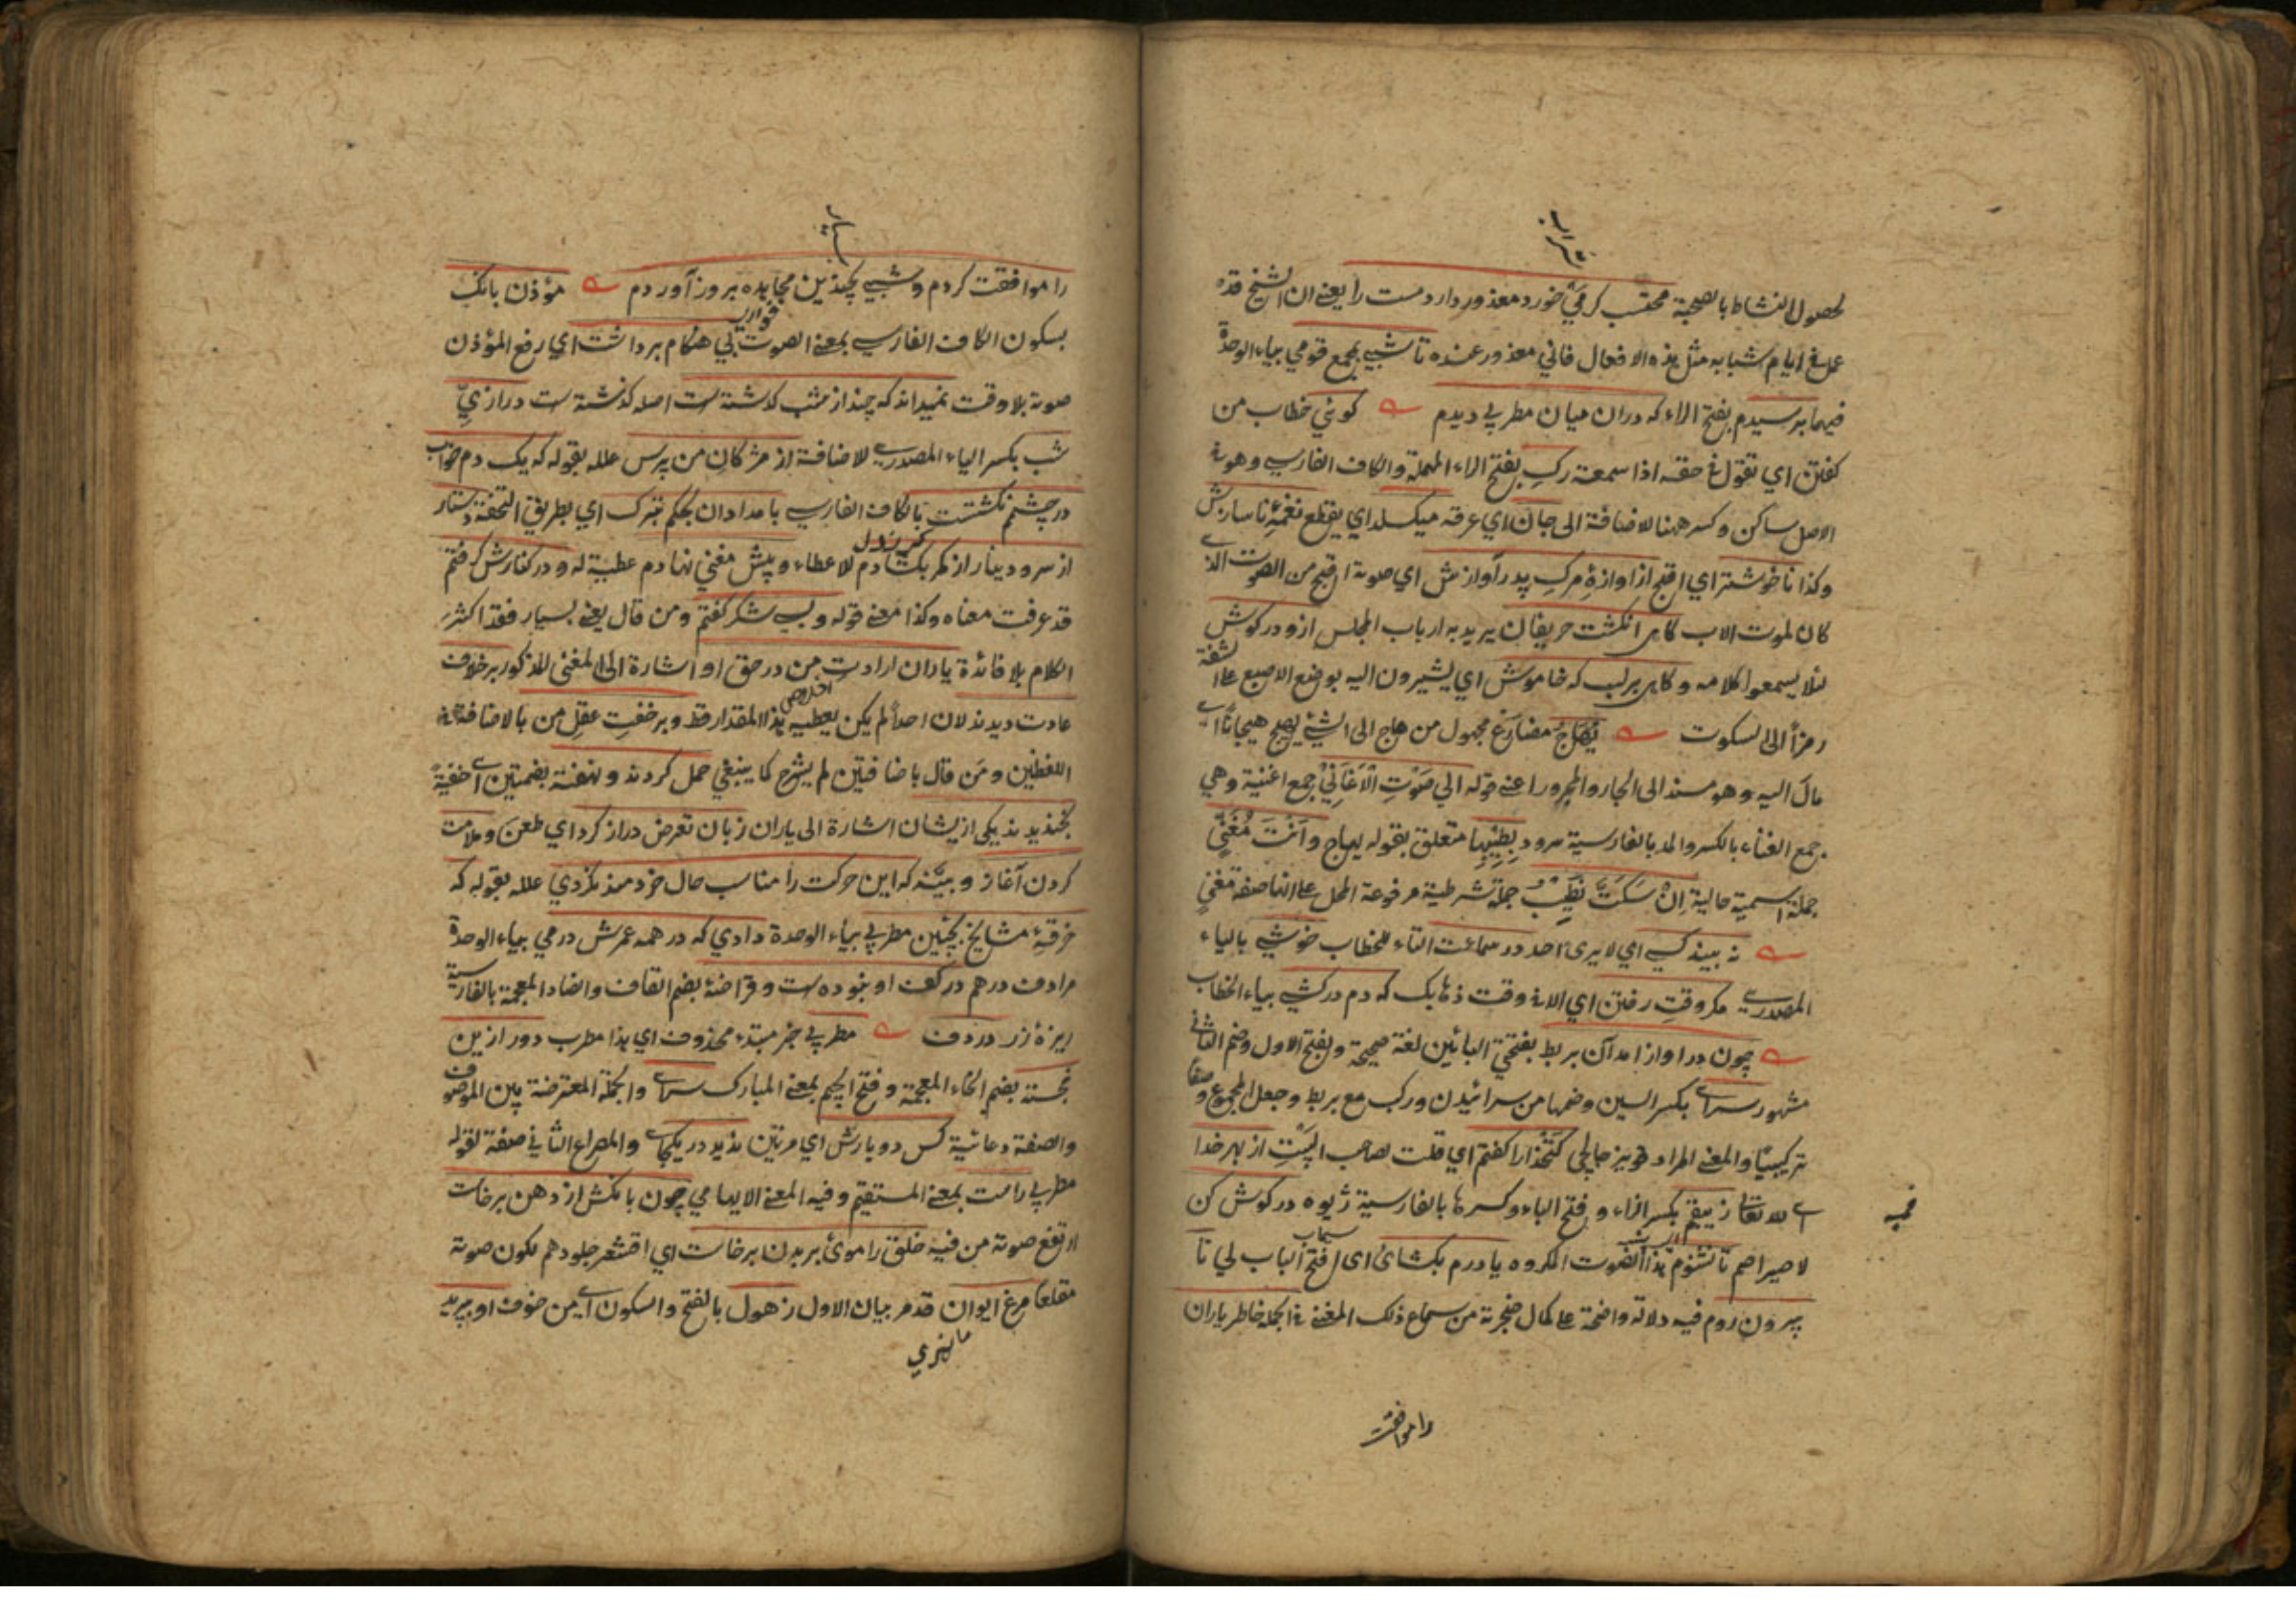 شراب
لحصول النشاط بالصحبة محتسب كرمَي خورد معذور دارد مست را يعنے ان الشيخ قده
عمل في ايام شبابه مثل هذه الافعال فاني معذور عنده تا شبي بمجمع قومي بياء الوحدة
فيهما برسيدم بفتح الراء كه دران ميان مطربي ديدم كوئي خطاب من
كفتن اي تقول في حقه اذا سمعته ركِ بفتح الراء المهملة والكاف الفارسے وهو في
الاصل ساكن وكسر ههنا للاضافة الى جان اي عرقه ميكسلد اي يقطع نغمۀ ناسازش
وكذا ناخوشتر اي اقبح از اوازۀ مرك پدر آوازش اي صوته اقبح من الصوت الذے
كان لموت الاب كاهى انكشت حريفان يريد به ارباب المجلس ازو در كوش
لئلا يسمعوا كلامه و كاهى بر لب كه خاموش اي يشيرون اليه بوضع الاصبع على الشفة
رمزاً الى السكوت يُهَاجُ مضارع مجهول من هاج الى الشيء يهيج هيجاناً اے
مال اليه وهو مسند الى الجار والمجرور اعنے قوله الي صَوْتِ الْاَغَانِيْ جمع اغنية وهي
جمع الغناء بالكسر والمد بالفارسية سرود بطِيْبِهَا متعلق بقوله يهاج وَاَنْتَ مُغَنٍّ
جملة اسمية حالية اِنْ سَكَتَّ نَطِيْبُ جملة شرطية مرفوعة المحل على انها صفة مغنٍ
نه بيند كسے اي لا يرى احد در سماعت التاء للخطاب خوشے بالياء
المصدرے مكر وقتِ رفتن اي الا في وقت ذهابك كه دم دركشے بياء الخطاب
چون در اواز امد آن بربط بفتحتي البائين لغة صحيحة وبفتح الاول وضم الثاني
مشهور سراے بكسر السين وضمها من سرائيدن وركب مع بربط وجعل المجموع وصفا
تركيبيًا والمعنے المراد قوپوز چاليجى كَتْخُدَا را كفتم اي قلت لصاحب البيت از بهر خدا
اے لله تعالى زيبقم بكسر الزاء وفتح الباء وكسرها بالفارسية ژيوه در كوش كن
سيماب
لا صير اصم تا نشنوم هذا الصوت المكروه يا درم بكشائ اى افتح الباب لي تا
بيرون روم فيه دلالة واضحة على كمال ضجرته من سماع ذلك المغنے في الجملة خاطر ياران
را موافقت
را موافقت كردم و شبے بچندين مجاهده بروز آوردم مؤذن بانك
بسكون الكاف الفارسے بمعنے الصوت بي هنكام برداشت اي رفع المؤذن
صوته بلا وقت نميداند كه چند از شب كذشته ست اصله كذشته است درازيِ
شب بكسر الياء المصدرے للاضافة از مژكان من پرس علله بقوله كه يك دم خواب
در چشمم نكشتت بالكاف الفارسے بامدادان بحكم تبرك اي بطريق التحفة دستار
از سر و دينار از كمر بكشادم للاعطاء و پيش مغني نهادم عطية له و در كنارش كرفتم
قد عرفت معناه وكذا معنے قوله و بسے شكر كفتم ومن قال يعنے بسيار فقد اكثر
الكلام بلا فائدة ياران ارادت من در حق او اشارة الى المغنى المذكور بر خلاف
اخلاص
عادت ديدند لان احداً لم يكن يعطيه هذا المقدار قط و بر خفت عقل من بالاضافة في
اللفظين ومَن قال باضافتين لم يشرح كما ينبغي حمل كردند و نهفته بضمتين اے خفيةً
بخنديدند يكى ازيشان اشارة الى ياران زبان تعرض دراز كرد اي طعن و ملامت
كردن آغاز و بيّنه كه اين حركت را مناسب حال خردمند نكردي علله بقوله كه
خرقۀ مشايخ بچنين مطربي بياء الوحدة دادي كه در همه عمرش درمي بياء الوحدة
مرادف درهم در كف او نبوده ست و قراضۀ بضم القاف والضاد المعجمة بالفارسية
ريزۀ زر در دف مطربي خبر مبتدء محذوف اي هذا مطرب دور ازين
خجسته بضم الخاء المعجمة و فتح الجيم بمعنے المبارك سراے والجملة المعترضة بين الموصوف
والصفة دعائية كس دوبارش اي مرتين نديد در يكجاے والمصراع الثاني صفة لقوله
مطربي راست بمعنے المستقيم وفيه المعنے الايهامي چون بانكش از دهن برخاست
ارتفع صوته من فيه خلق را موئ بر بدن برخاست اي اقشعر جلودهم لكون صوته
مقلعا مرغ ايوان قد مر بيان الاول ز هول بالفتح والسكون اے من خوف او بپريد